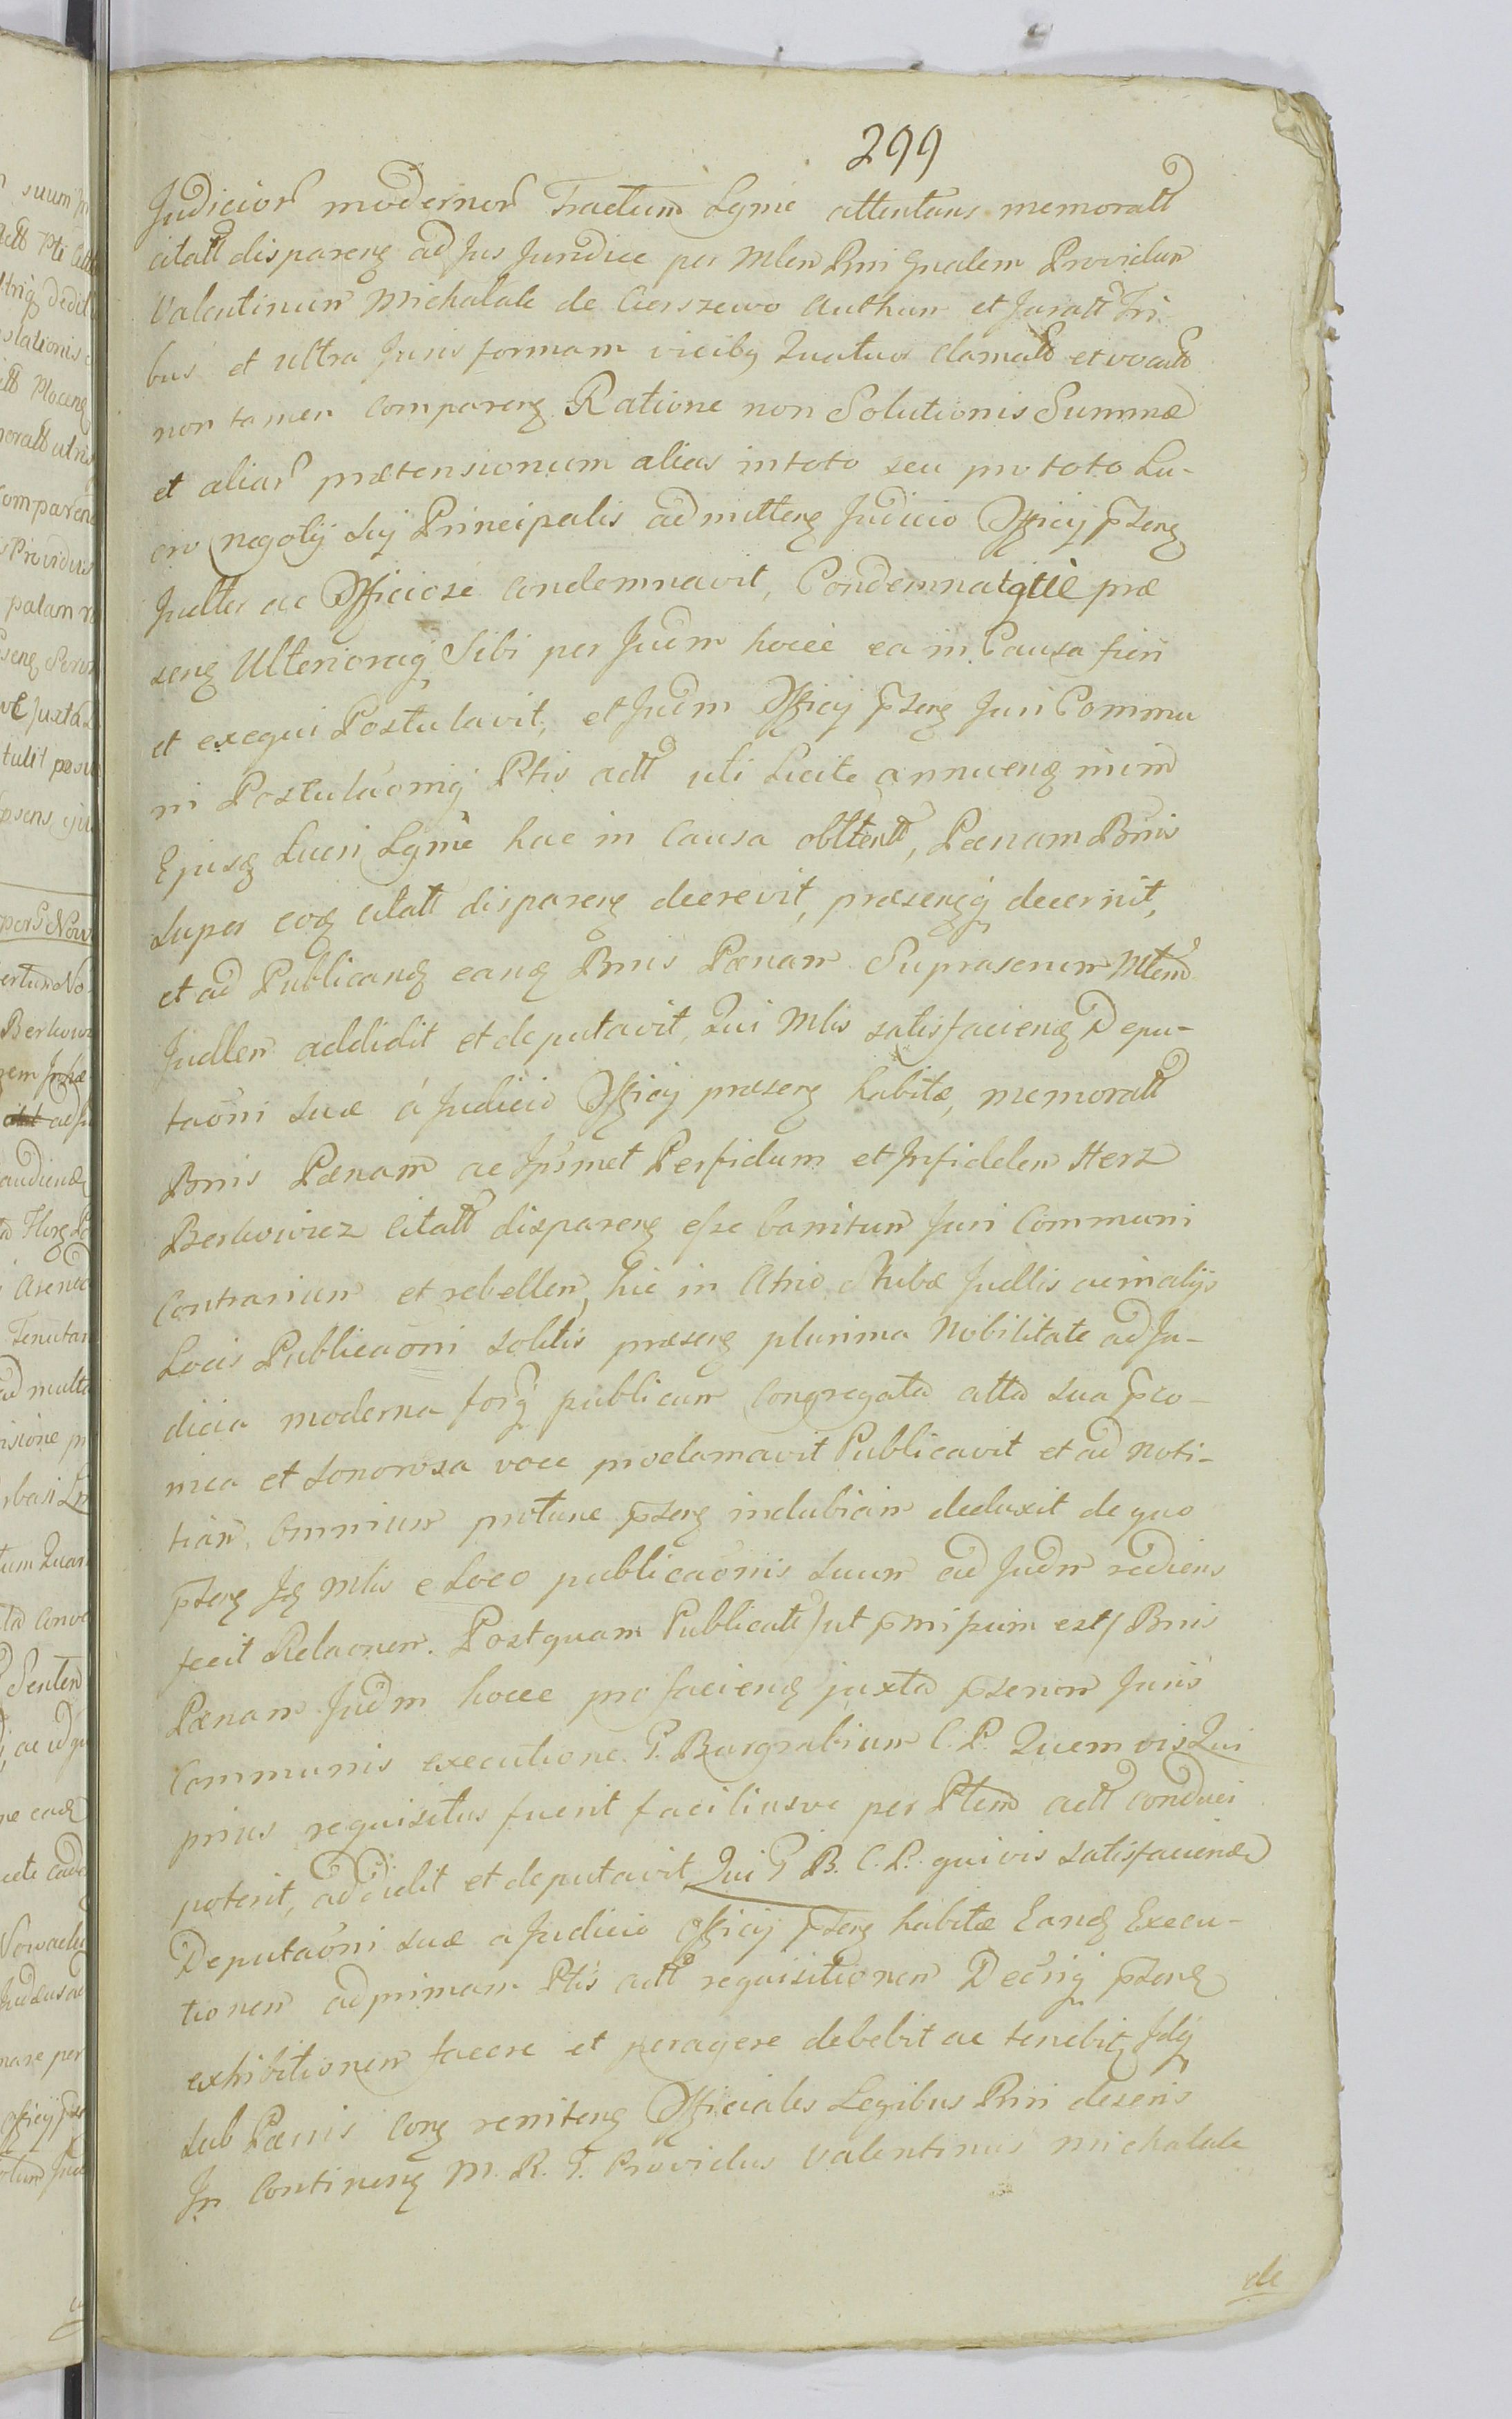 299
Judicior modernor Tractum Lgme attentans memoratt
citatt disparenz ad Jus Juridice per Mlem Rni Gnalem Providum
Valentinum Michalak de Cierszewo Authum et Juratt Tri
bus et ultra Juris formam vicibg Quatuor clamatt et vocatt
non tamen comparenz Ratione non Solutionis Summæ
et aliar prætensionum alias intoto seu pro toto Lu-
cro negotij sui Principalis admittenz Judicio Officij pszenz
Judltr ac Officiose condemnavit, Condemnatque præ
senz Ulteriorag Sibi per Judm hocce ea in Causa fieri
et exequi Postulavit, et Judm Officij pszenz Juri Commu
ni Postulaõnig Ptis actt uti Licite annuenz
Ejusq Lucri Lgme hac in Causa obttentt, Pœnam Bnis
super eoq citatt disparenz decrevit, præsenzg decernit,
et ad Publicang eang Bnis Pœnam Suprascrum Mlem
Judlem addidit et deputavit, Qui Mlis satisfaciendo Depu-
taõni suæ á Judicio Officij præsenz habitæ, memoratt
Bnis Pœnam ac Ipsmet Perfidum et Infidelem Herz
Berkowicz Citatt disparenz esse banitum Juri Communi
Contrarium et rebellem, hic in Atrio Stubæ Judlis ac in alijs
Locis Publicaõni solitis præsenz plurima Nobilitate ad Ju-
dicia moderna forg publicum congregata alta sua pco-
nica et sonorosa voce proclamavit Publicavit et ad noti-
tiam Omnium protunc pszenz indubiam deduxit de quo
pszenz Jg Mlis e Loco publicaõnis suum ad Judm rediens
fecit Relaõnem. Postquam Publicatt /ut pmissum est/ Bnis
Pœnam Judm hocce pro facienz juxta pszenm Juris
Communis executione G. Burgrabium C. P. Quemvis Qui
prius requisitus fuerit faciliusve per Ptem actt conduci
poterit, addidit et deputavit, Qui G B. C. P. quivis satisfaciendo
Deputaõni suæ a Judicio Officij pszenz habitæ Eang Execu-
tionem ad primam Ptis actt requisitionem Decrig pszenz
exhibitionem facere et peragere debebit ac tenebitz Jdg
sub Pœnis Conz renitenz Officiales Legibus Rni descris
In Continenz M. R. G. Providus Valentinus Michalak
de